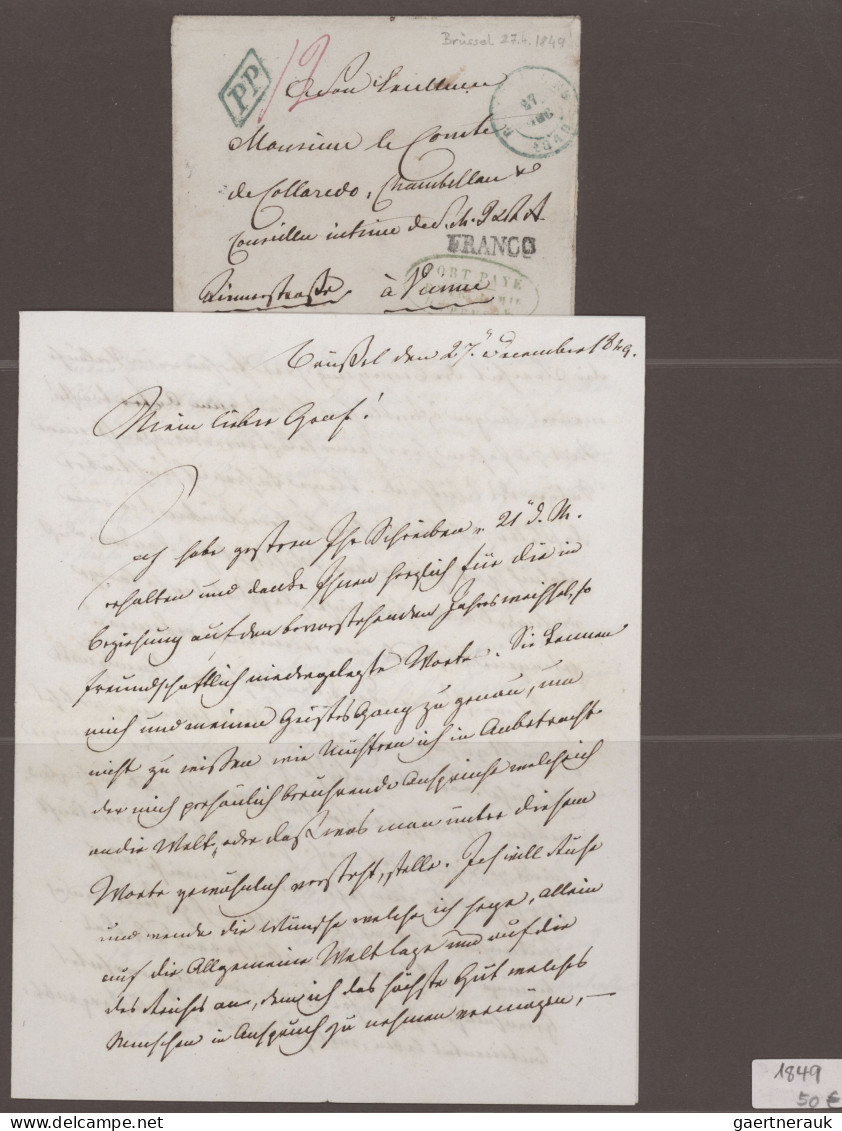 Brüssel 27.4.1849
PP
12
A Son Excellence
Monsieur le Comte
de Collaredo, Chambellan &
Conseiller intime de S. M.
FRANCO
PORT PAYE
à Vienne
Brüssel den 27" December 1849.
Mein lieber Graf!
Ich habe gestern Ihr Schreiben v. 21" d. M.
erhalten und danke Ihnen herzlich für die in
Beziehung auf den bevorstehenden Jahreswechsel, so
freundschaftlich niedergelegte Worte. Sie kennen
mich und meinen Geistes Gang zu genau, um
nicht zu wissen wie Nüchtern ich in Anbetracht
der mich persönlich berührende Ansprüche welche ich
an die Welt, oder daß was man unter diesem
Worte gewöhnlich versteht, stelle. Ich will Ruhe
und wende die Wünsche welche ich hege, allein
auf die Allgemeine Weltlage und auf die
des Reiches an, dem ich das höchste Gut welches
Menschen in Anspruch zu nehmen vermögen, —
1849
50 €
gaertnerauk